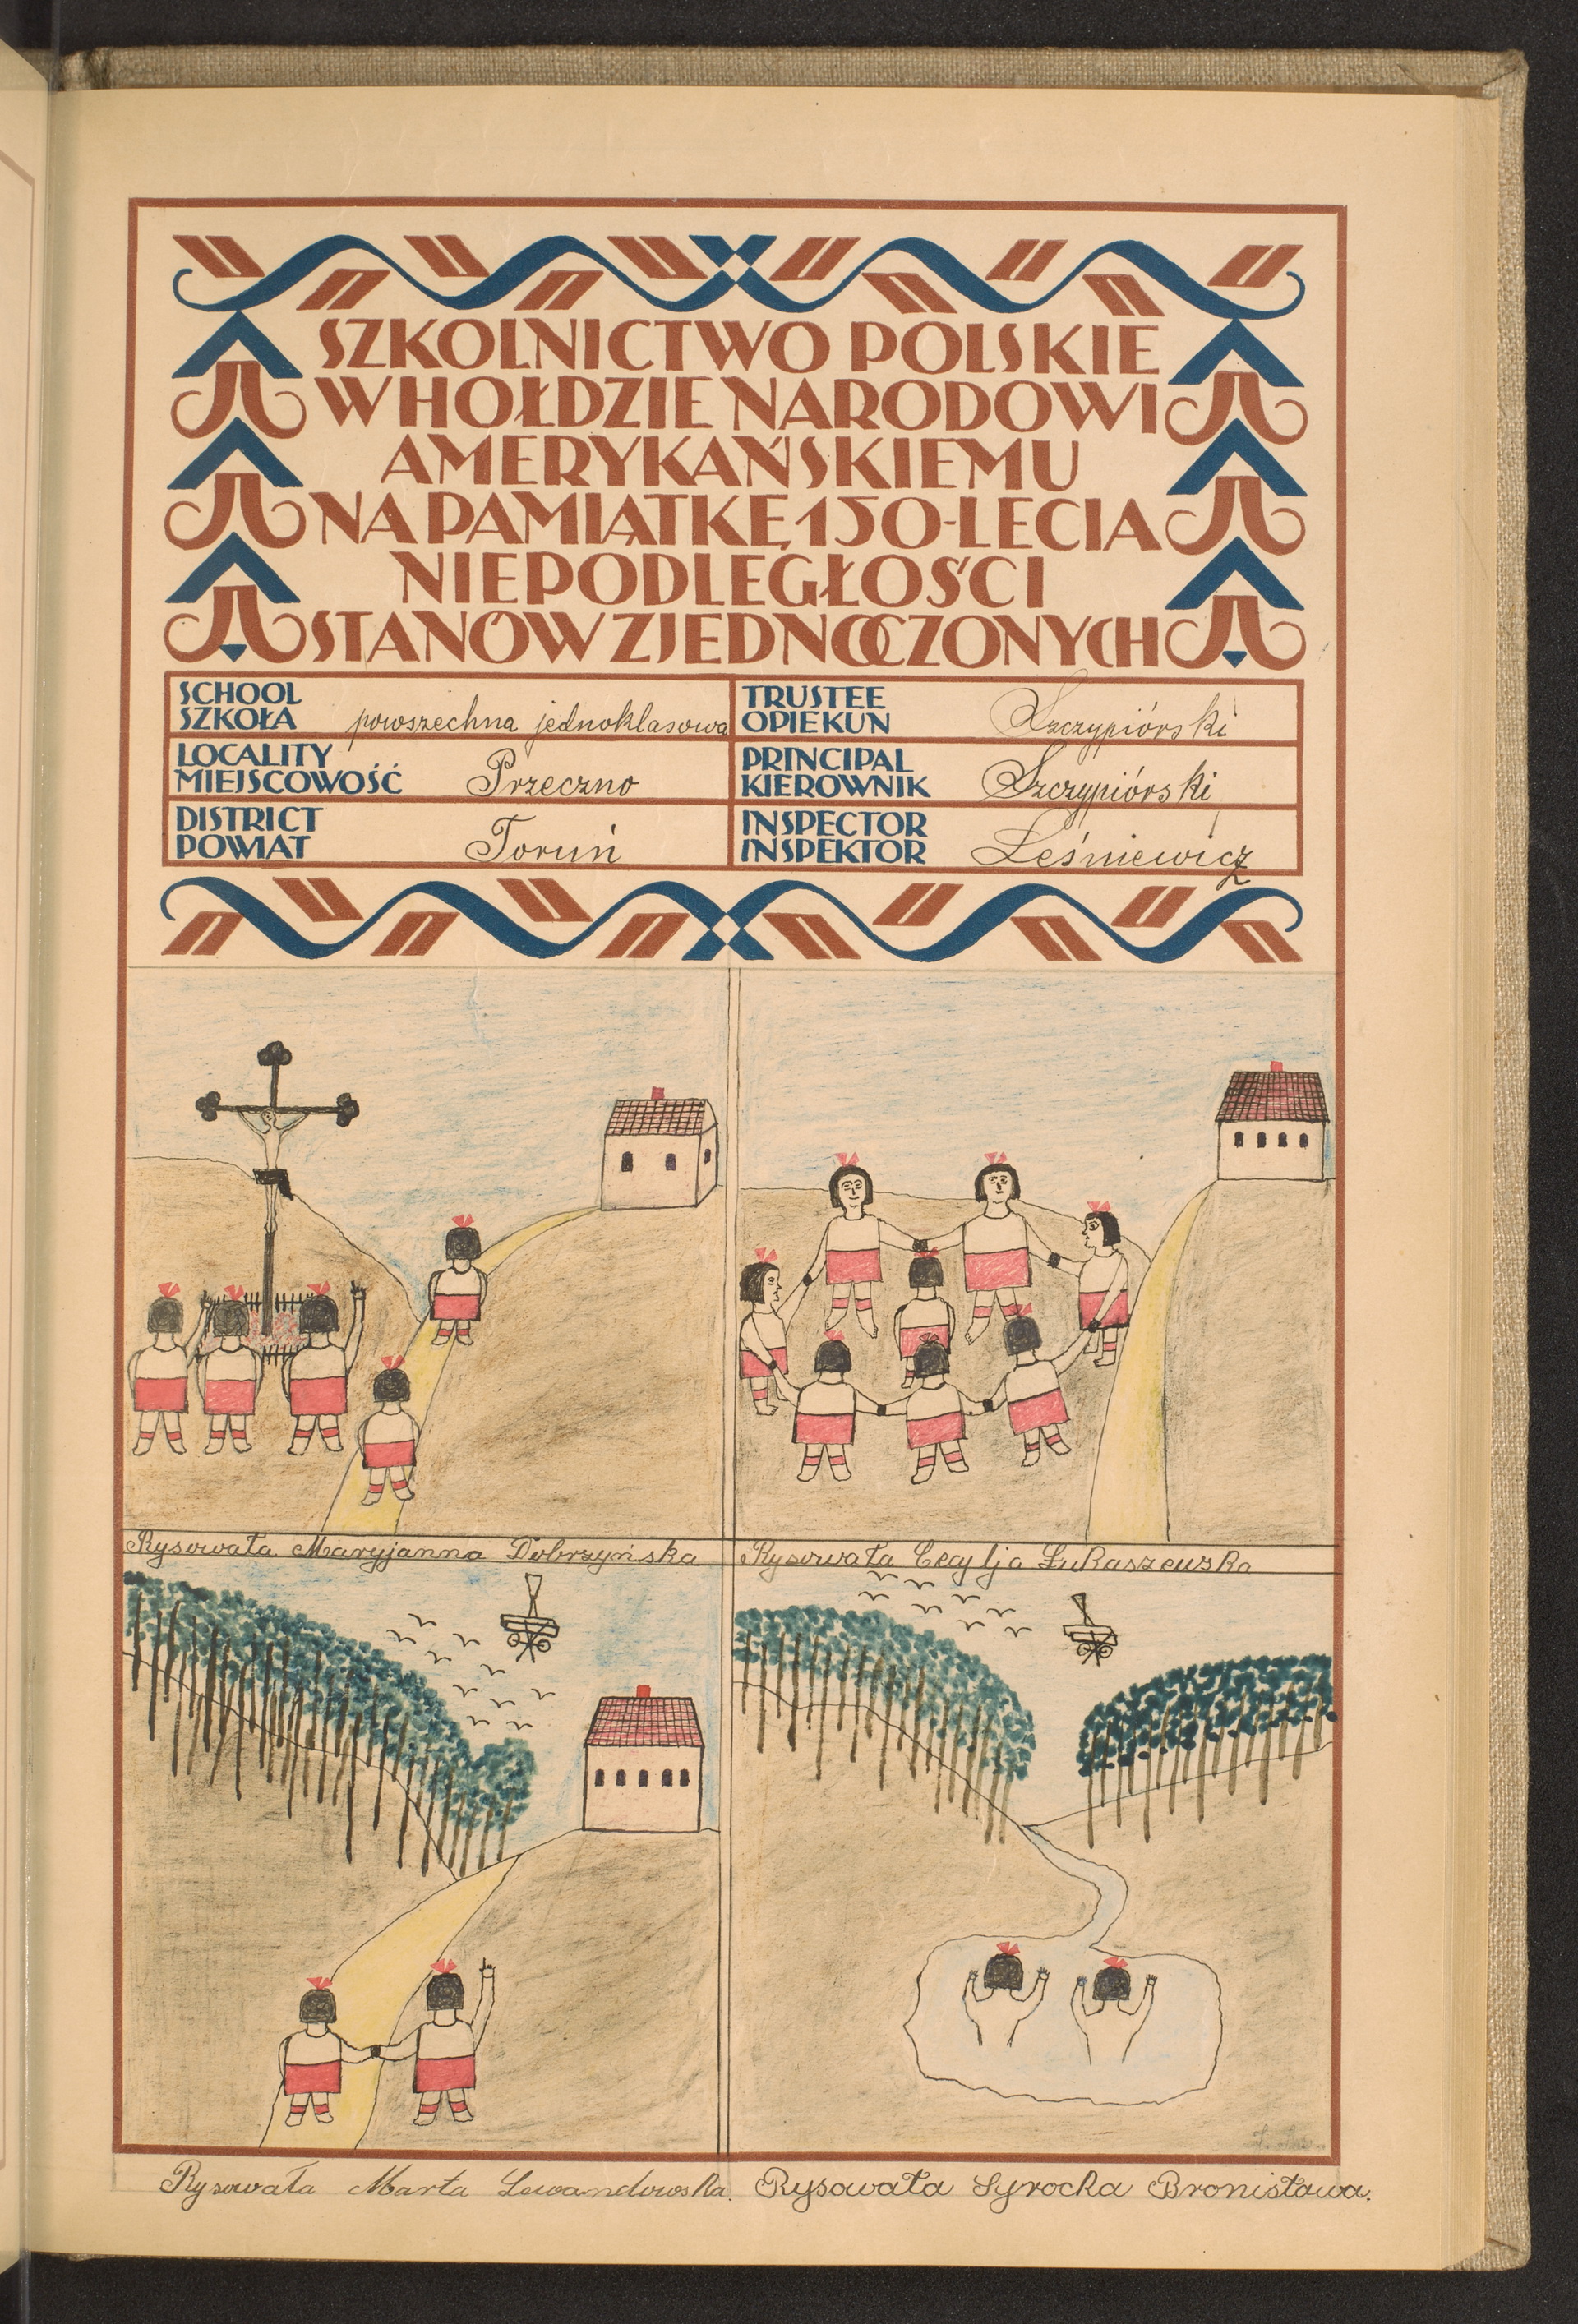 SZKOLNICTWO POLSKIE
W HOŁDZIE NARODOWI
AMERYKAŃSKIEMU
NA PAMIĄTKĘ 150-LECIA
NIEPODLEGŁOŚCI
STANÓW ZJEDNOCZONYCH
SCHOOL
SZKOŁA powszechna jednoklasowa
TRUSTEE
OPIEKUN Szczypiórski
LOCALITY
MIEJSCOWOŚĆ Przeczno
PRINCIPAL
KIEROWNIK Szczypiórski
DISTRICT
POWIAT Toruń
INSPECTOR
INSPEKTOR Leśniewicz
Rysowała Maryjanna Dobrzyńska
Rysowała Cecylja Łukaszewska
Rysowała Marta Lewandowska.
Rysowała Syrocka Bronisława.